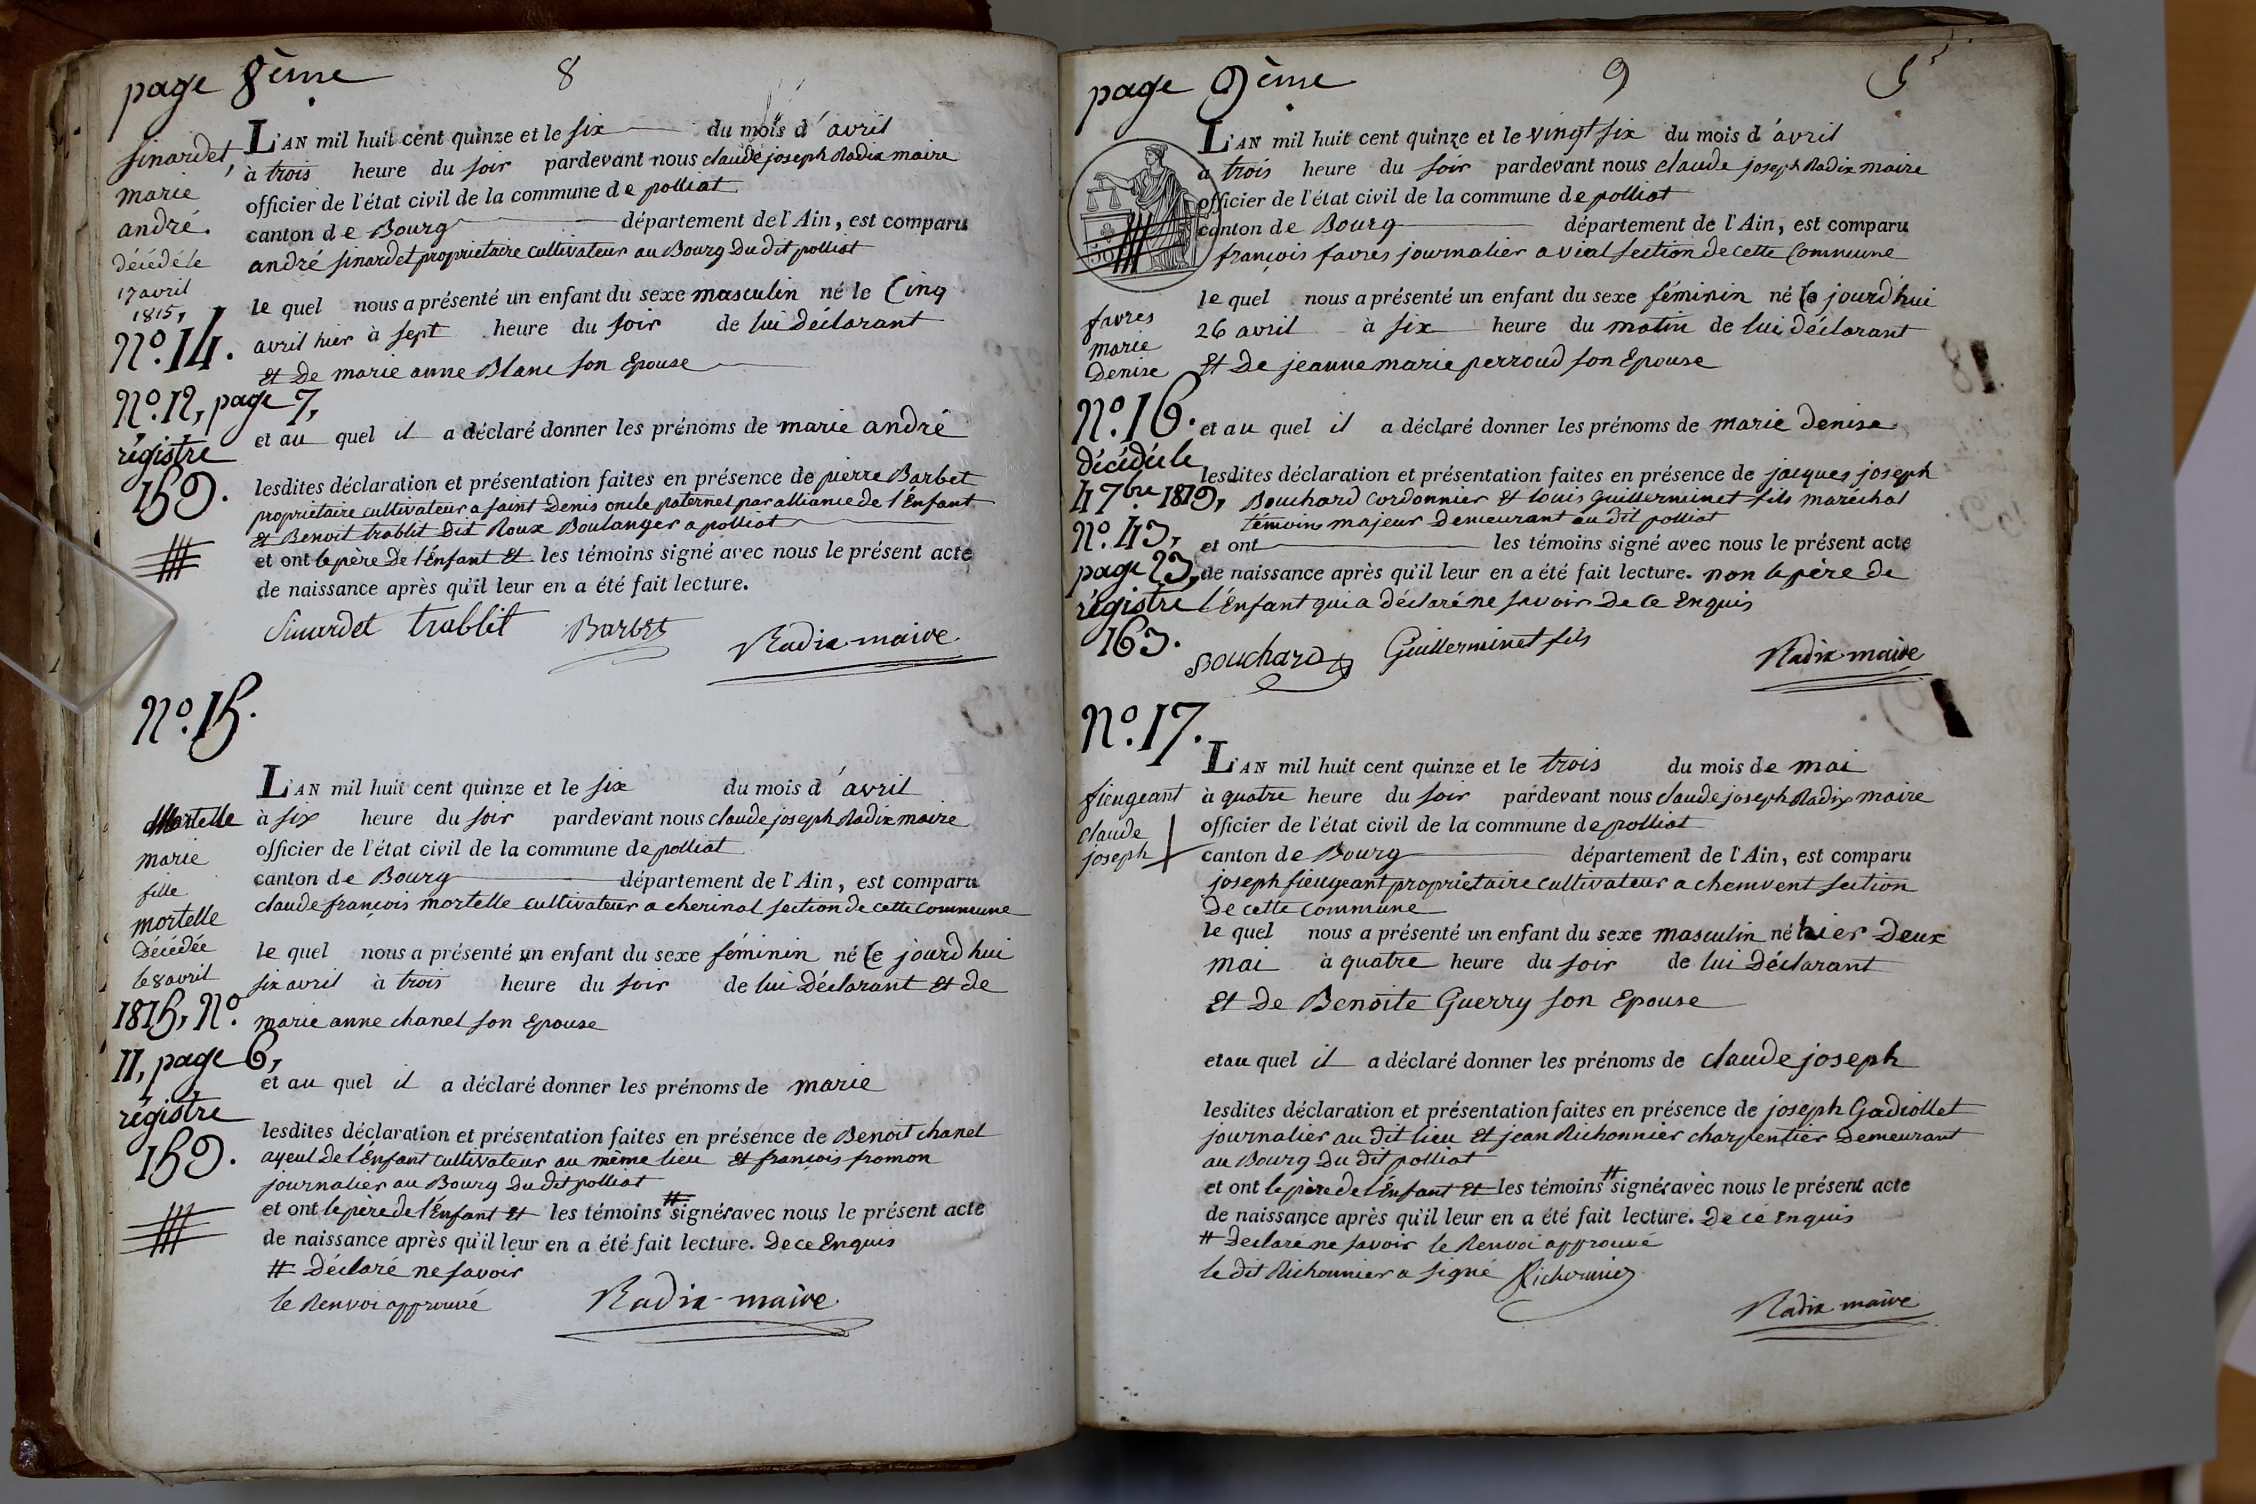 page 8ème
8
L'AN mil huit cent quinze et le six du mois d'avril
à trois heure du soir pardevant nous claude joseph Radix maire
officier de l'état civil de la commune de polliat
canton de Bourg département de l'Ain, est comparu
andré sinardet propriétaire cultivateur au Bourg Du dit polliat
le quel nous a présenté un enfant du sexe masculin né le Cinq
avril hier à sept heure du soir de lui Déclarant
Et De marie anne Blanc son Epouse
et au quel il a déclaré donner les prénoms de marie andré
lesdites déclaration et présentation faites en présence de pierre Barbet
propriétaire cultivateur a saint Denis oncle paternel par alliance de l'Enfant
Et Benoit trablit Dit Roux Boulanger a polliat
et ont le père De l'Enfant Et les témoins signé avec nous le présent acte
de naissance après qu'il leur en a été fait lecture.
Sinardet trablit Barbet Radix maire
sinardet,
marie
andré.
décédé le
17 avril
1815,
No. 14.
No. 12, page 7,
régistre
159.
No. 15.
L'AN mil huit cent quinze et le six du mois d'avril
à six heure du soir pardevant nous claude joseph Radix maire
officier de l'état civil de la commune de polliat
canton de Bourg département de l'Ain, est comparu
claude françois mortelle cultivateur a cherinal section de cette Commune
le quel nous a présenté un enfant du sexe féminin né Ce jourd'hui
six avril à trois heure du soir de lui Déclarant Et de
marie anne chanel son Epouse
et au quel il a déclaré donner les prénoms de marie
lesdites déclaration et présentation faites en présence de Benoit chanel
ayeul de l'Enfant cultivateur au même lieu Et françois fromon
journalier au Bourg Du dit polliat
et ont le père de l'Enfant Et les témoins # signé avec nous le présent acte
de naissance après qu'il leur en a été fait lecture. De ce Enquis
# Déclaré ne savoir
le Renvoi approuvé Radix maire
Mortelle
marie
fille
mortelle
Décédée
le 8 avril
1815, No.
11, page 6,
régistre
159.
page 9ème
9
5
L'AN mil huit cent quinze et le vingt six du mois d'avril
à trois heure du soir pardevant nous claude joseph Radix maire
officier de l'état civil de la commune de polliat
canton de Bourg département de l'Ain, est comparu
françois favres journalier a vial section de cette Commune
le quel nous a présenté un enfant du sexe féminin né Ce jourd'hui
26 avril à six heure du matin de lui Déclarant
Et De jeanne marie perroud son Epouse
et au quel il a déclaré donner les prénoms de marie denise
lesdites déclaration et présentation faites en présence de jacques joseph
Bouchard Cordonnier Et louis guillerminet fils maréchal
témoins majeur Demeurant au dit polliat
et ont les témoins signé avec nous le présent acte
de naissance après qu'il leur en a été fait lecture. non le père de
l'Enfant qui a déclaré ne savoir De ce Enquis
Bouchard Guillerminet fils Radix maire
favres
marie
Denise
No. 16.
décédée le
4 7bre 1819,
No. 43,
page 23,
régistre
163.
No. 17.
L'AN mil huit cent quinze et le trois du mois de mai
à quatre heure du soir pardevant nous claude joseph Radix maire
officier de l'état civil de la commune de polliat
canton de Bourg département de l'Ain, est comparu
joseph fieugeant propriétaire cultivateur a chemvent section
De cette Commune
le quel nous a présenté un enfant du sexe masculin né hier Deux
mai à quatre heure du soir de lui Déclarant
Et de Benoite Guerry son Epouse
et au quel il a déclaré donner les prénoms de claude joseph
lesdites déclaration et présentation faites en présence de joseph Gadiollet
journalier au dit lieu Et jean Richonnier charpentier Demeurant
au Bourg Du dit polliat
et ont le père de l'Enfant Et les témoins # signé avec nous le présent acte
de naissance après qu'il leur en a été fait lecture. De ce Enquis
# Déclaré ne savoir le Renvoi approuvé
le dit Richonnier a signé Richonnier
Radix maire
fieugeant
claude
joseph